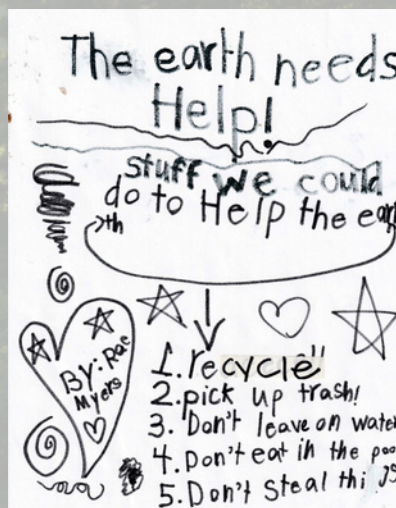 The earth needs
Help!
stuff we could
do to Help the ear
th
By: Rae
Myers
1. recycle
2. pick up trash!
3. Don't leave on water
4. Don't eat in the poo
5. Don't Steal